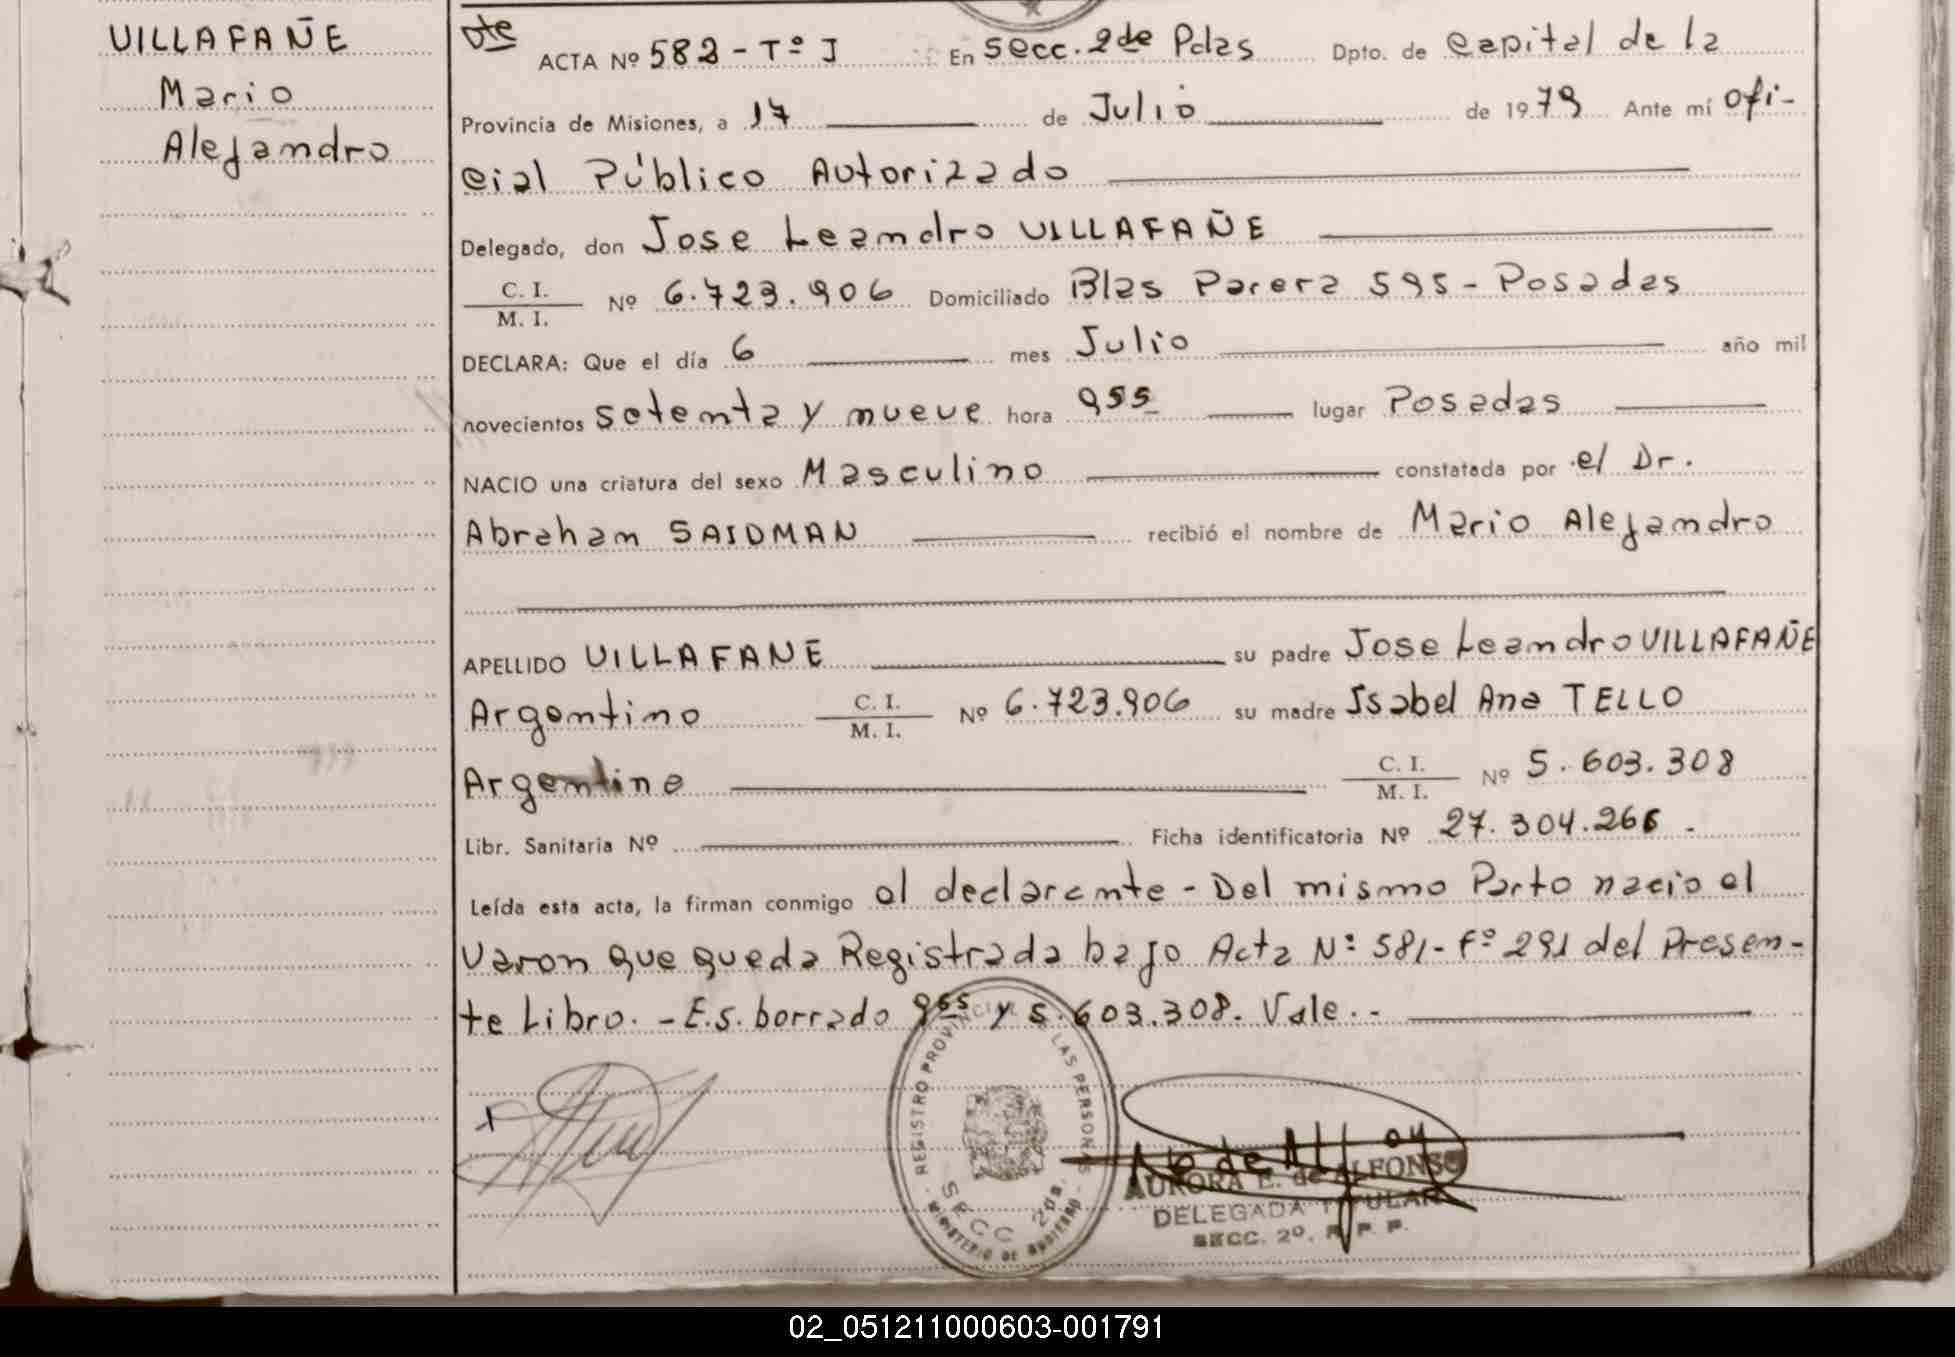 VILLAFAÑE
Mario
Alejandro
ACTA Nº 582 - Tº I En Secc. 2da Pdas Dpto. de Capital de la
Provincia de Misiones, a 17 de Julio de 1979 Ante mí Ofi-
cial Público Autorizado
Delegado, don Jose Leandro VILLAFAÑE
C. I.
M. I. Nº 6.723.906 Domiciliado Blas Parera 595 - Posadas
DECLARA: Que el día 6 mes Julio año mil
novecientos setenta y nueve hora 955 lugar Posadas
NACIO una criatura del sexo Masculino constatada por el Dr.
Abraham SAIDMAN recibió el nombre de Mario Alejandro
APELLIDO VILLAFAÑE su padre Jose Leandro VILLAFAÑE
Argentino C. I.
M. I. Nº 6.723.906 su madre Isabel Ana TELLO
Argentina C. I.
M. I. Nº 5.603.308
Libr. Sanitaria Nº Ficha identificatoria Nº 27.304.266 -
Leída esta acta, la firman conmigo el declarante - Del mismo Parto nacio el
Varon que queda Registrada bajo Acta Nº 581 - Fº 291 del Presen-
te Libro. - E.s. borrado 955 y 5.603.308. Vale. -
REGISTRO PROVINCIAL LAS PERSONAS
SECC 2da.
MINISTERIO DE GOBIERNO
AURORA E. de ALFONSO
DELEGADA TITULAR
SECC. 2º. R. P. P.
02_051211000603-001791